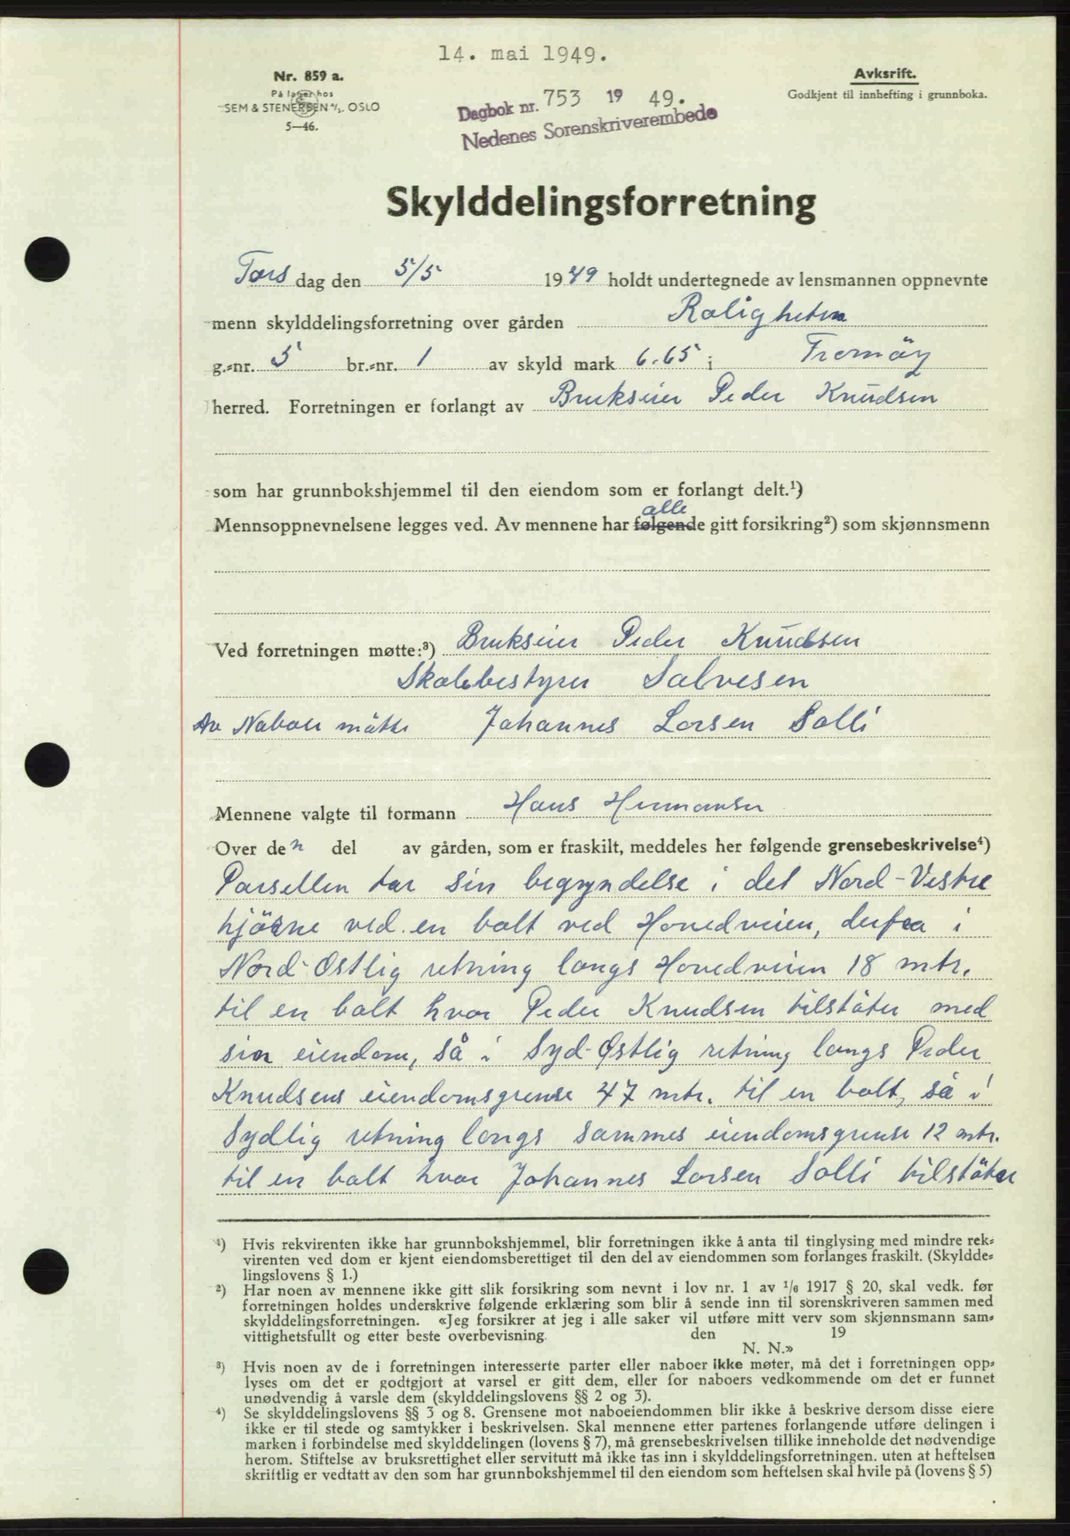 14. mai 1949.
Nr. 859 a.
På lager hos
SEM & STENERSEN A/S. OSLO
5—46.
Avksrift.
Godkjent til innhefting i grunnboka.
Dagbok nr. 753 19 49.
Nedenes Sorenskriverembede
Skylddelingsforretning
Tors dag den 5/5 1949 holdt undertegnede av lensmannen oppnevnte
menn skylddelingsforretning over gården Roligheten
g.-nr. 5 br.-nr. 1 av skyld mark 6.65 i Tromöy
herred. Forretningen er forlangt av Brukseier Peder Knudsen
som har grunnbokshjemmel til den eiendom som er forlangt delt.¹)
alle
Mennsoppnevnelsene legges ved. Av mennene har følgende gitt forsikring²) som skjønnsmenn
Ved forretningen møtte:³) Brukseier Peder Knudsen
Skolebestyrer Salvesen
Av Naboer mötte Johannes Larsen Solli
Mennene valgte til formann Hans Hermansen
Over den del av gården, som er fraskilt, meddeles her følgende grensebeskrivelse⁴)
Parsellen tar sin begyndelse i det Nord-Vestre
hjörne ved en bolt ved Hovedveien, derfra i
Nord-Østlig retning langs Hovedveien 18 mtr.
til en bolt hvor Peder Knudsen tilstöter med
sin eiendom, så i Syd-Østlig retning langs Peder
Knudsens eiendomsgrense 47 mtr. til en bolt, så i
Sydlig retning langs sammes eiendomsgrense 12 mtr.
til en bolt hvor Johannes Larsen Solli tilstöter
¹) Hvis rekvirenten ikke har grunnbokshjemmel, blir forretningen ikke å anta til tinglysing med mindre rek-
virenten ved dom er kjent eiendomsberettiget til den del av eiendommen som forlanges fraskilt. (Skyldde-
lingslovens § 1.)
²) Har noen av mennene ikke gitt slik forsikring som nevnt i lov nr. 1 av 1/6 1917 § 20, skal vedk. før
forretningen holdes underskrive følgende erklæring som blir å sende inn til sorenskriveren sammen med
skylddelingsforretningen. «Jeg forsikrer at jeg i alle saker vil utføre mitt verv som skjønnsmann sam-
vittighetsfullt og etter beste overbevisning. den 19
N. N.»
³) Hvis noen av de i forretningen interesserte parter eller naboer ikke møter, må det i forretningen opp-
lyses om det er godtgjort at varsel er gitt dem, eller for naboers vedkommende om det er funnet
unødvendig å varsle dem (skylddelingslovens §§ 2 og 3).
⁴) Se skylddelingslovens §§ 3 og 8. Grensene mot naboeiendommen blir ikke å beskrive dersom disse eiere
ikke er til stede og samtykker i beskrivelsen. Skal mennene etter partenes forlangende utføre delingen i
marken i forbindelse med skylddelingen (lovens § 7), må grensebeskrivelsen tillike inneholde det nødvendige
herom. Stiftelse av bruksrettighet eller servitutt må ikke tas inn i skylddelingsforretningen. uten at heftelsen
skriftlig er vedtatt av den som har grunnbokshjemmel til den eiendom som heftelsen skal hvile på (lovens § 5)